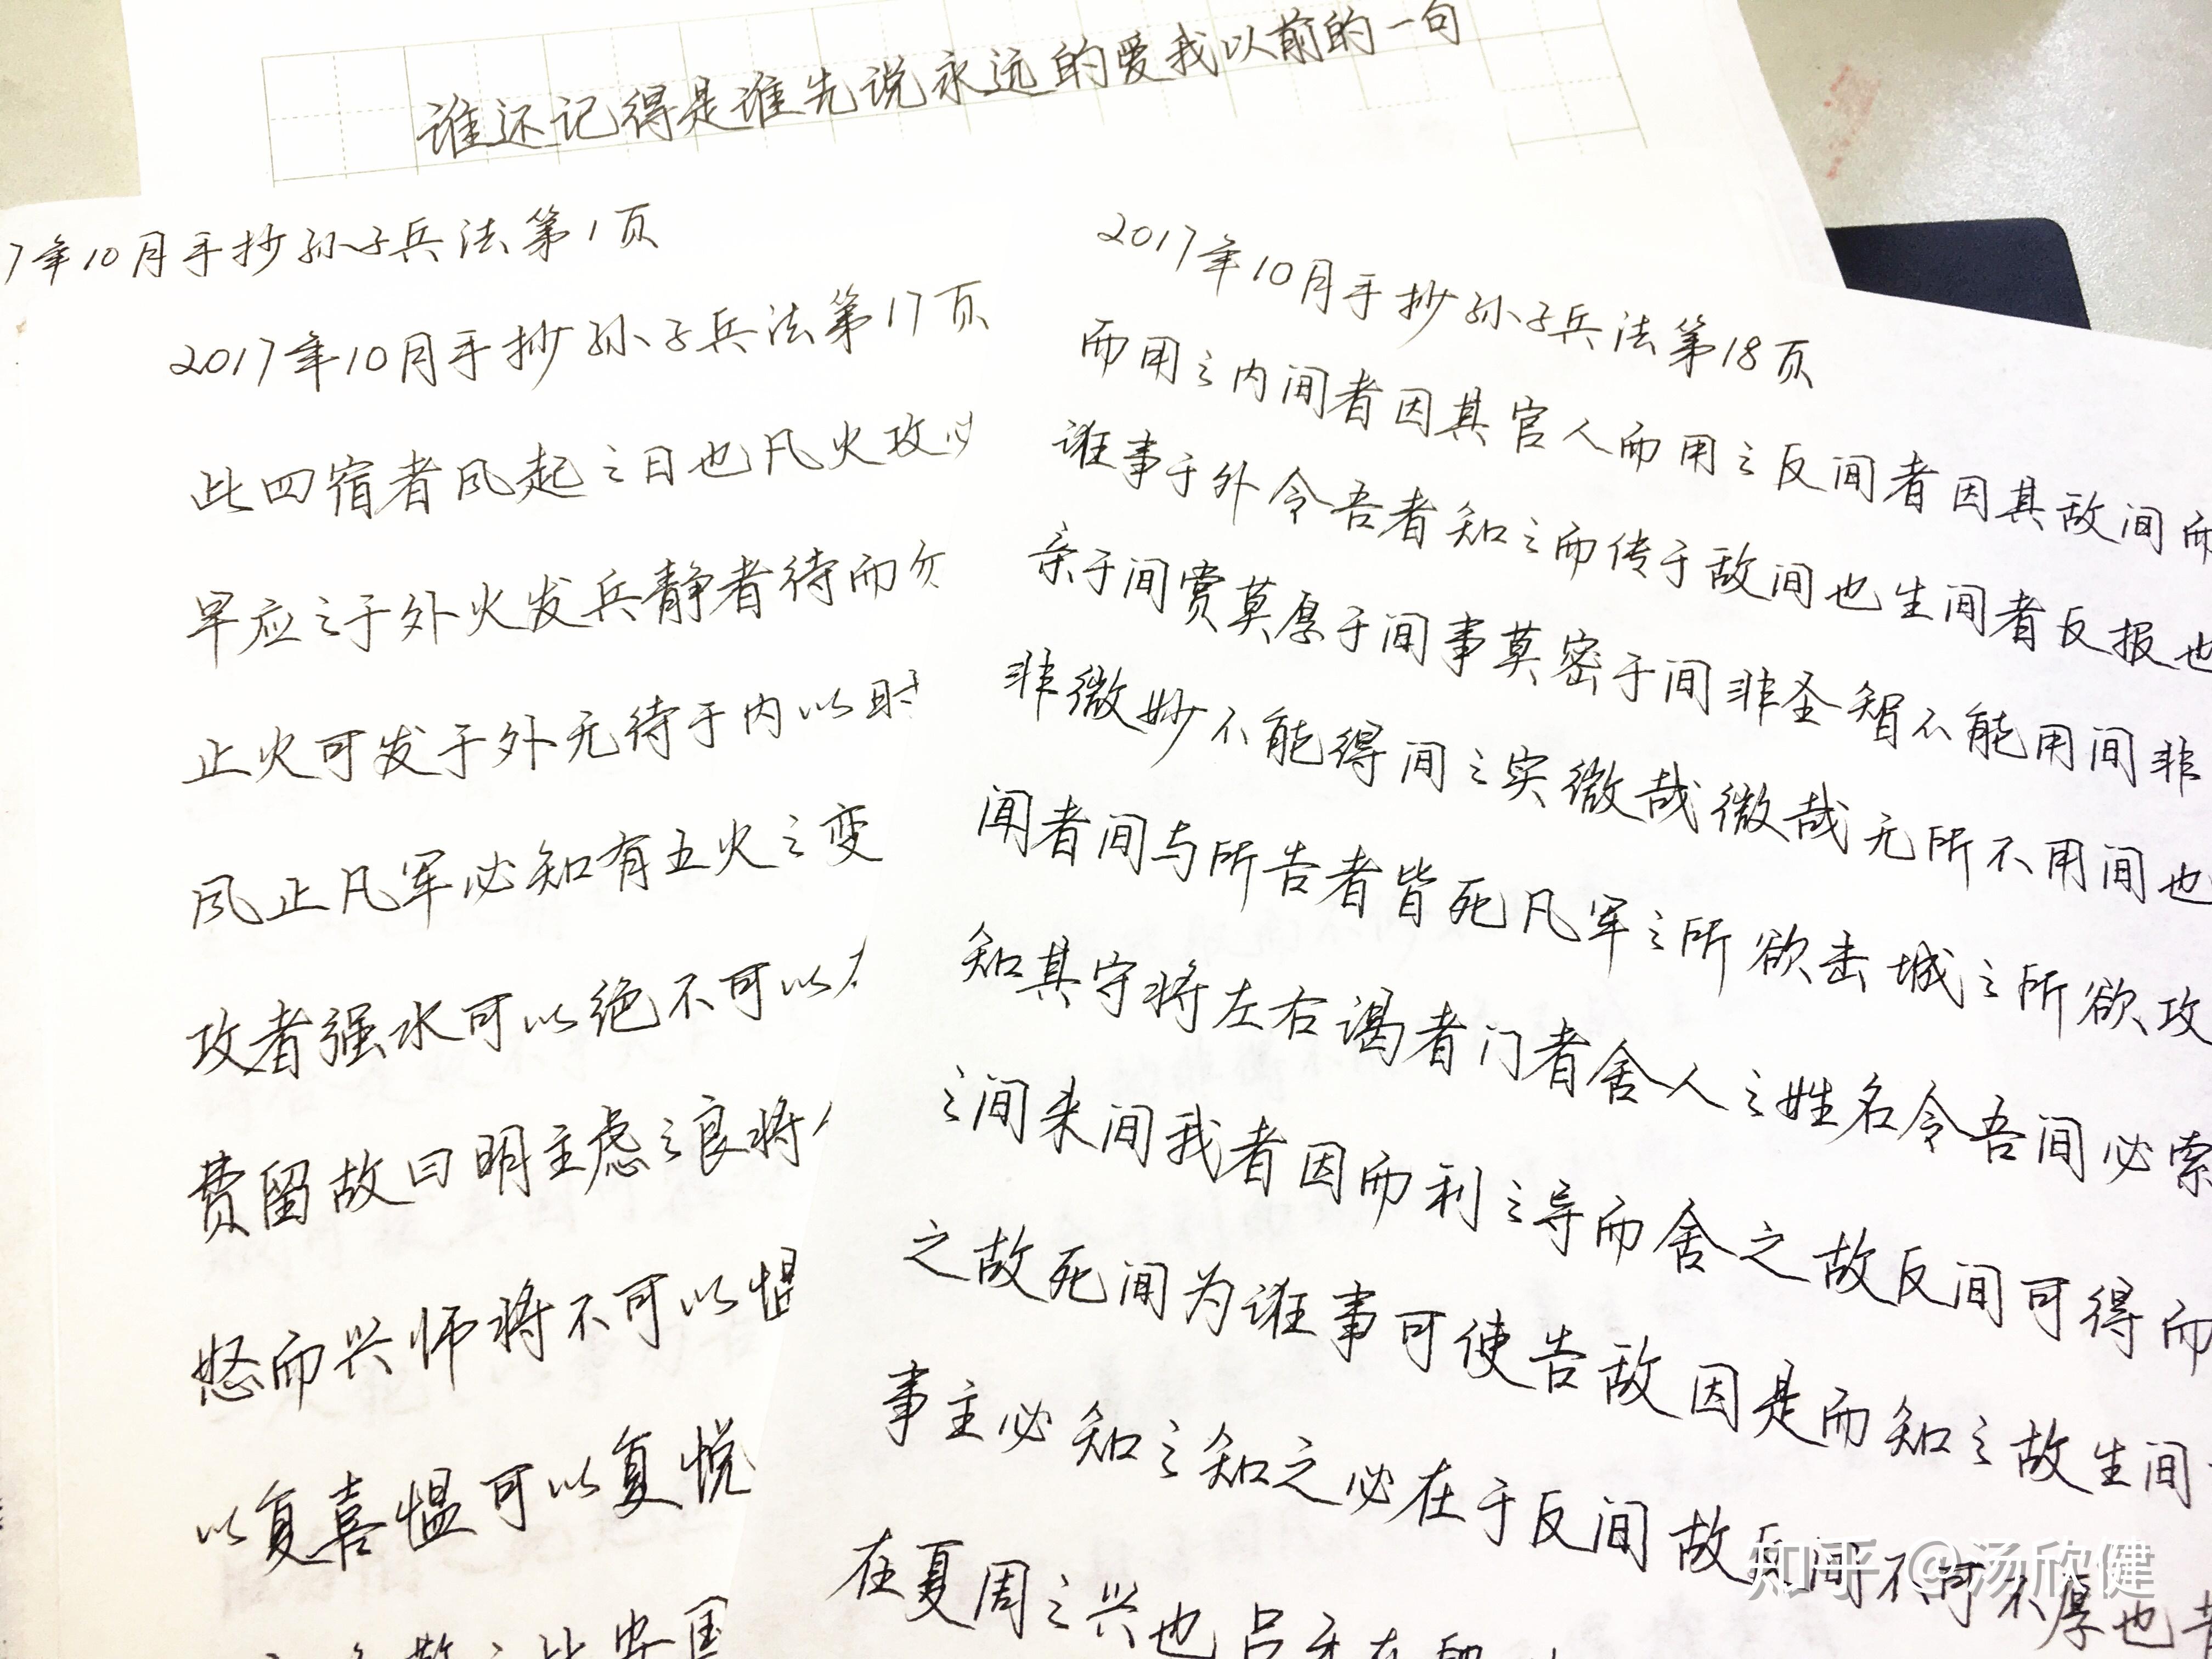 谁还记得是谁先说永远的爱我以前的一句
7年10月手抄孙子兵法第1页
2017年10月手抄孙子兵法第17页
此四宿者风起之日也凡火攻必
早应之于外火发兵静者待而勿
止火可发于外无待于内以时
风止凡军必知有五火之变
攻者强水可以绝不可以
费留故曰明主虑之良将
怒而兴师将不可以愠
以复喜愠可以复悦
之此安国
2017年10月手抄孙子兵法第18页
而用之内间者因其官人而用之反间者因其敌间而
诳事于外令吾者知之而传于敌间也生间者反报也
亲于间赏莫厚于间事莫密于间非圣智不能用间非
非微妙不能得间之实微哉微哉无所不用间也
闻者间与所告者皆死凡军之所欲击城之所欲攻
知其守将左右谒者门者舍人之姓名令吾间必索
之间来间我者因而利之导而舍之故反间可得而
之故死间为诳事可使告敌因是而知之故生间
事主必知之知之必在于反间故反间不可不厚也昔
在夏周之兴也吕牙在殷
知乎 @汤欣健